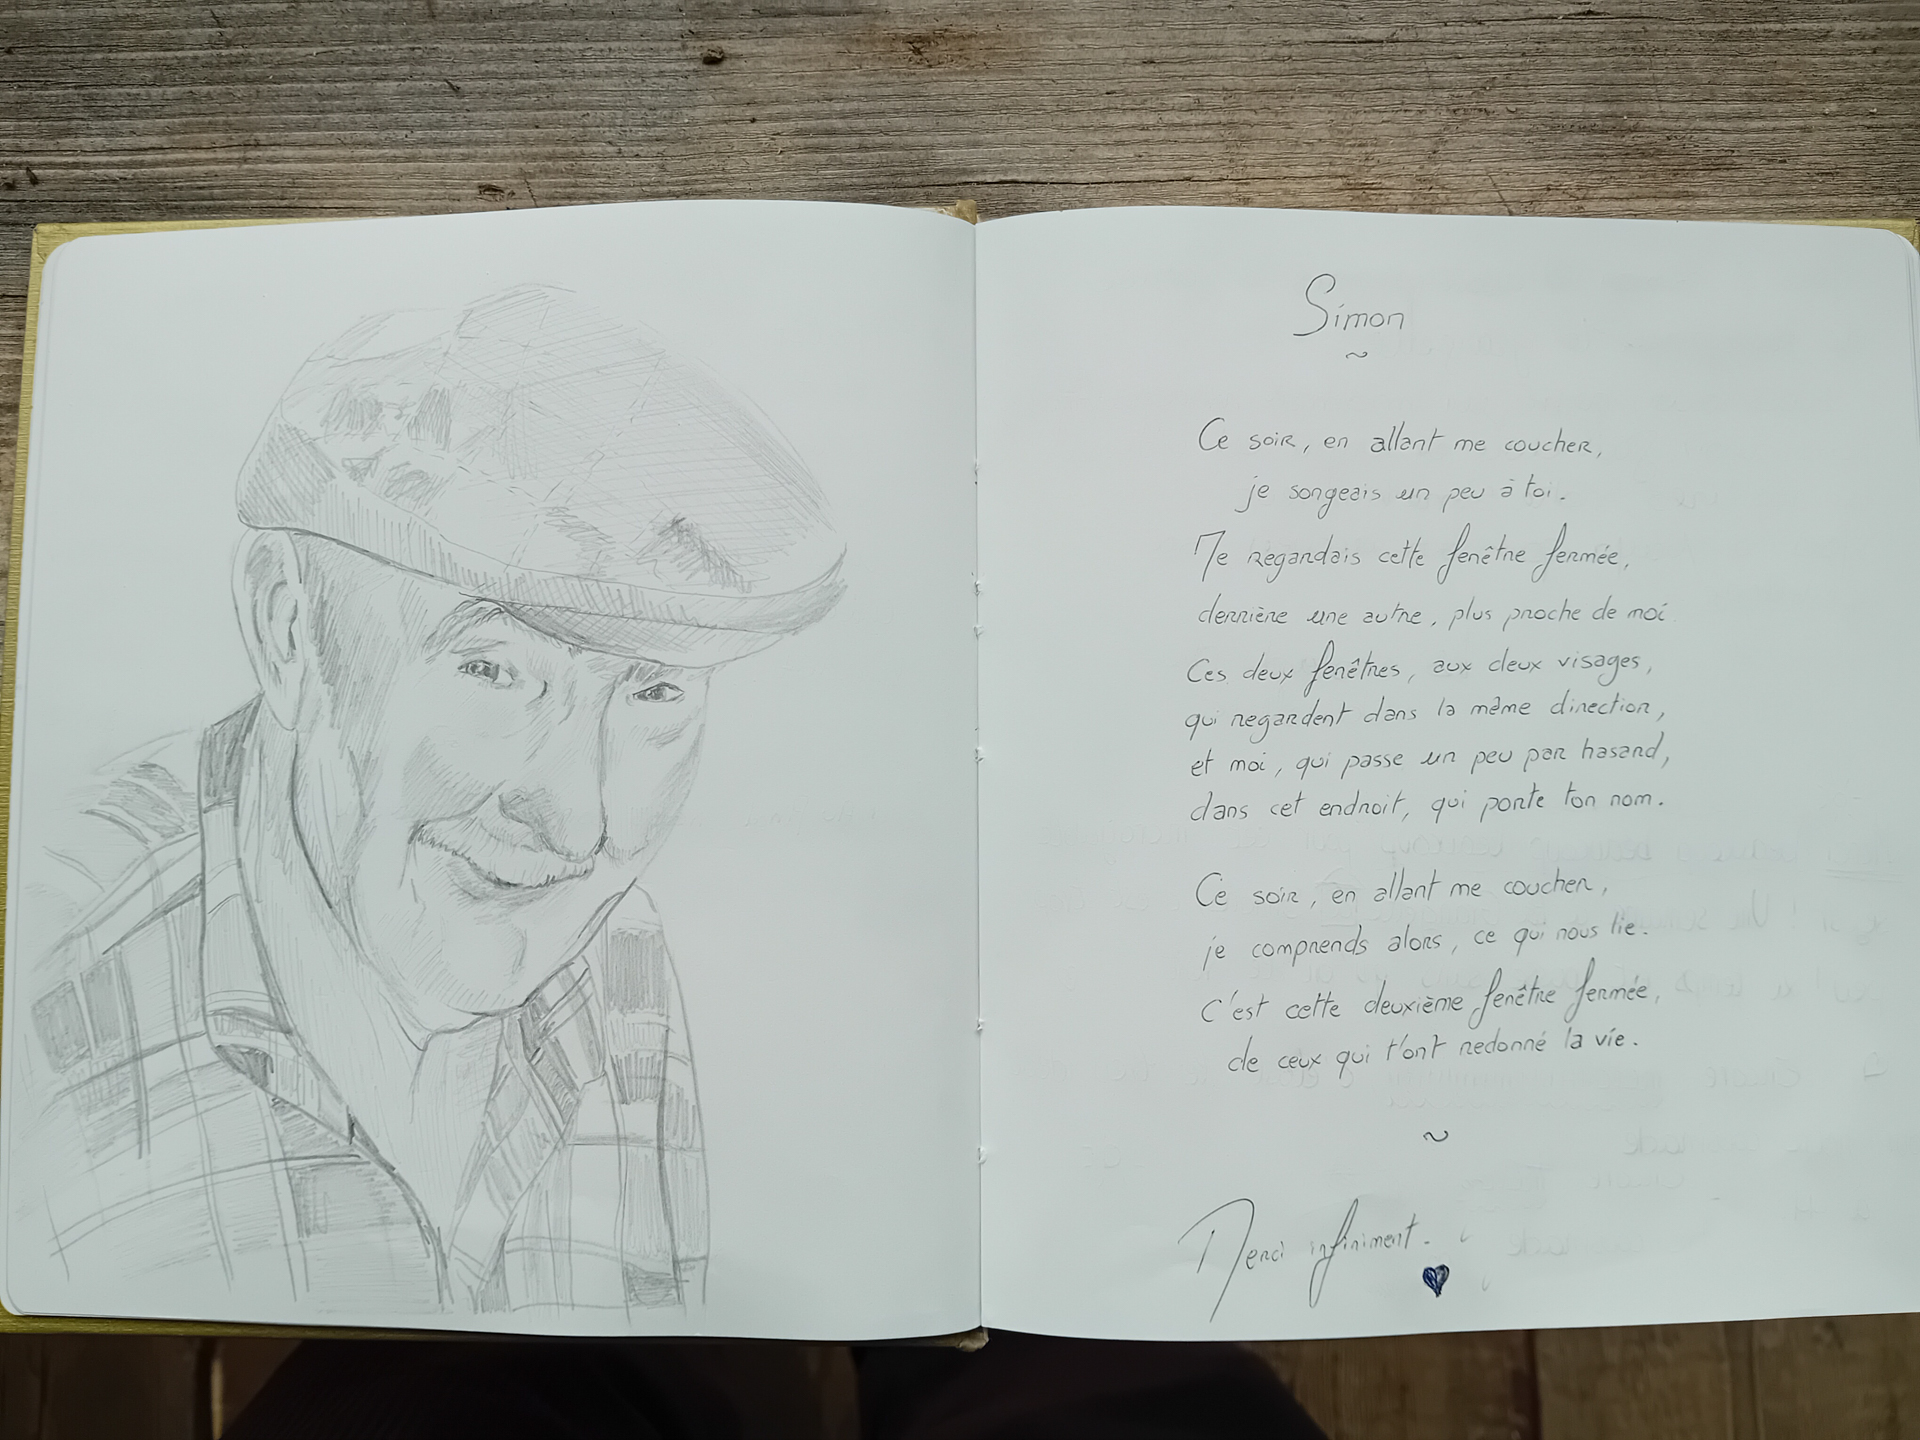 Simon
~
Ce soir, en allant me coucher,
je songeais un peu à toi.
Je regardais cette fenêtre fermée,
derrière une autre, plus proche de moi.
Ces deux fenêtres, aux deux visages,
qui regardent dans la même direction,
et moi, qui passe un peu par hasard,
dans cet endroit, qui porte ton nom.
Ce soir, en allant me coucher,
je comprends alors, ce qui nous lie.
C'est cette deuxième fenêtre fermée,
de ceux qui t'ont redonné la vie.
~
Merci infiniment.